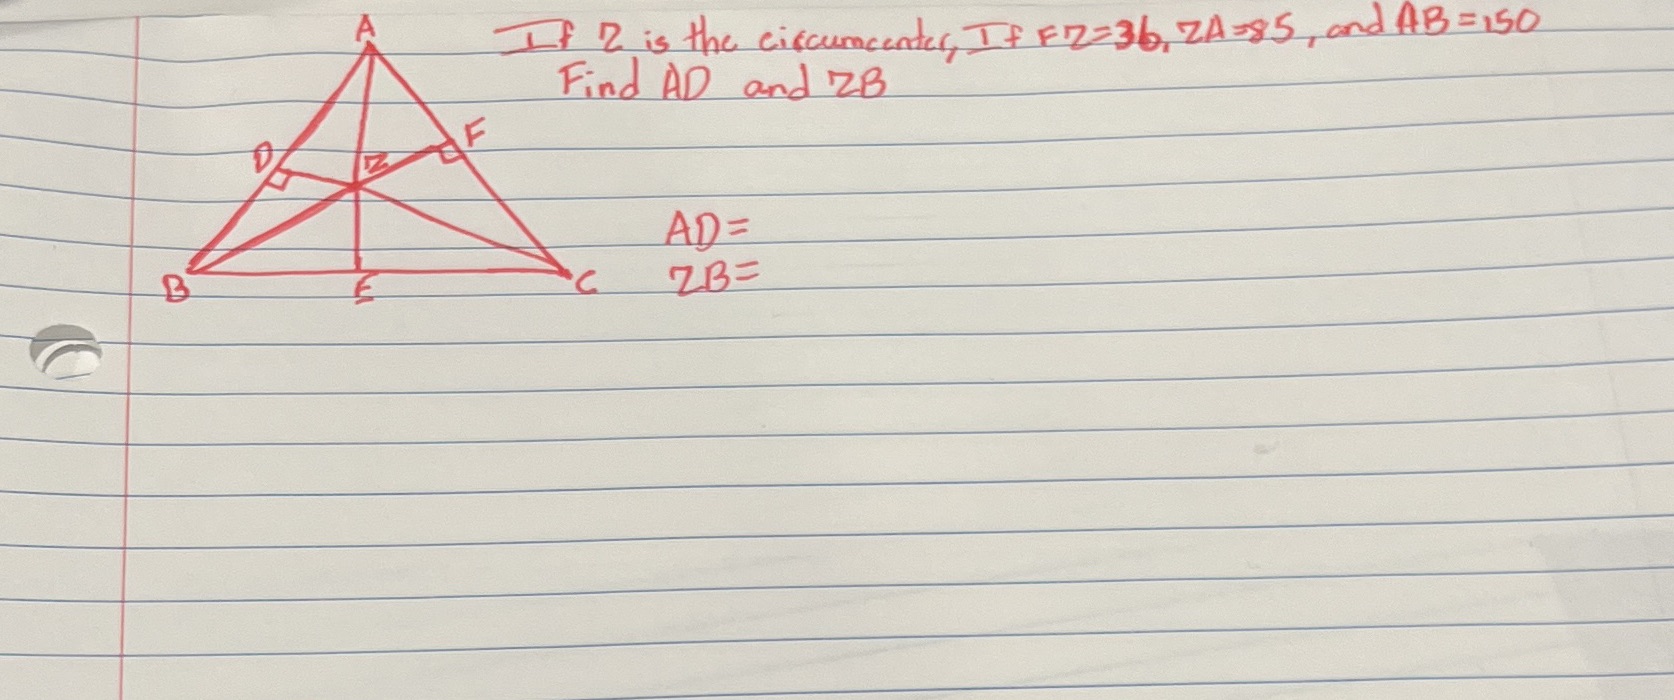 If Z is the circumcenter, If FZ=36, ZA=85, and AB=150
Find AD and ZB
A
F
D
Z
AD=
ZB=
B
E
C